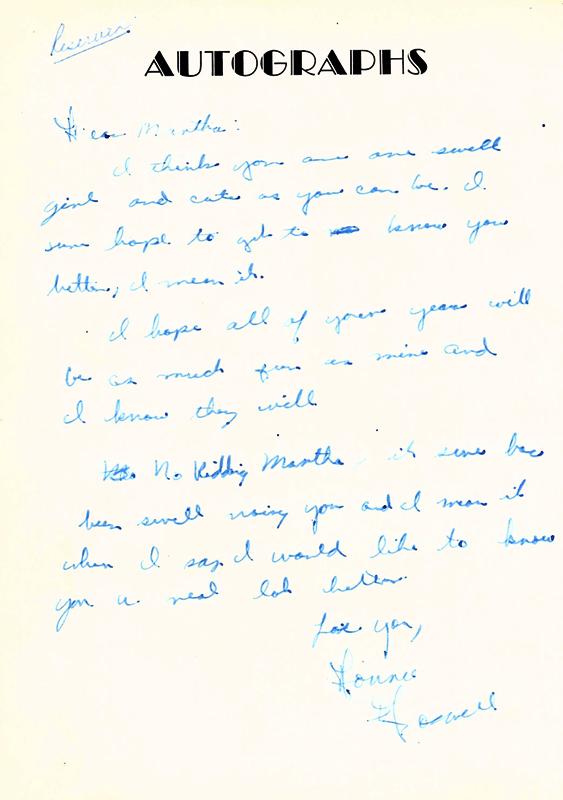 Reserved
AUTOGRAPHS
Dear Martha:
I think you are one swell
girl and cute as you can be. I
sure hope to get to know you
better, I mean it.
I hope all of your years will
be as much fun as mine and
I know they will
No Kidding Martha it sure has
been swell knowing you and I mean it
when I say I would like to know
you a real lot better.
you,